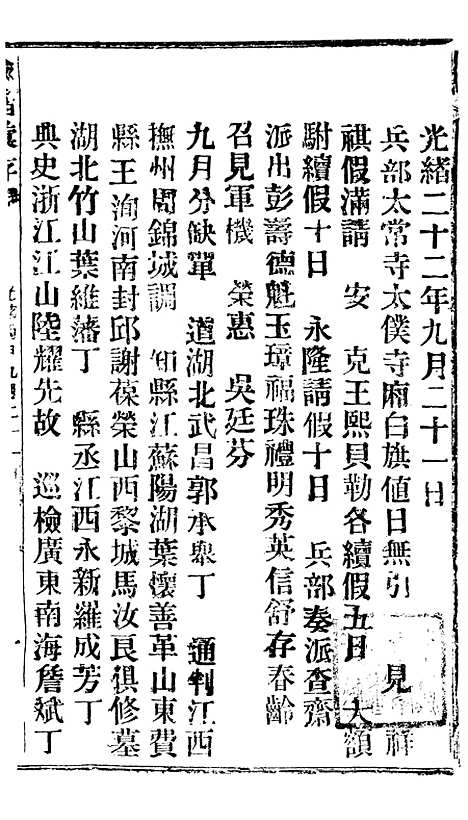 光緒二十二年九月二十一日
兵部太常寺太僕寺廂白旗值日無引 見 祥
祺假滿請 安 克王熙貝勒各續假五日 大額
駙續假十日 永隆請假十日 兵部奏派查齋
派出彭壽德魁玉璋福珠禮明秀英信舒存春齡
召見軍機 榮惠 吳廷芬
九月分缺單 道湖北武昌郭承舉丁 通判江西
撫州周錦城調 知縣江蘇陽湖葉懷善革山東費
縣王洵河南封邱謝葆榮山西黎城馬汝良俱修墓
湖北竹山葉維藩丁 縣丞江西永新羅成芳丁
典史浙江江山陸耀先故 巡檢廣東南海詹斌丁